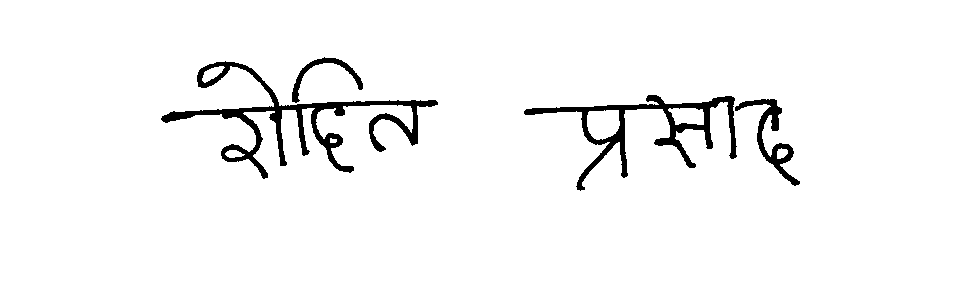 रोहित प्रसाद